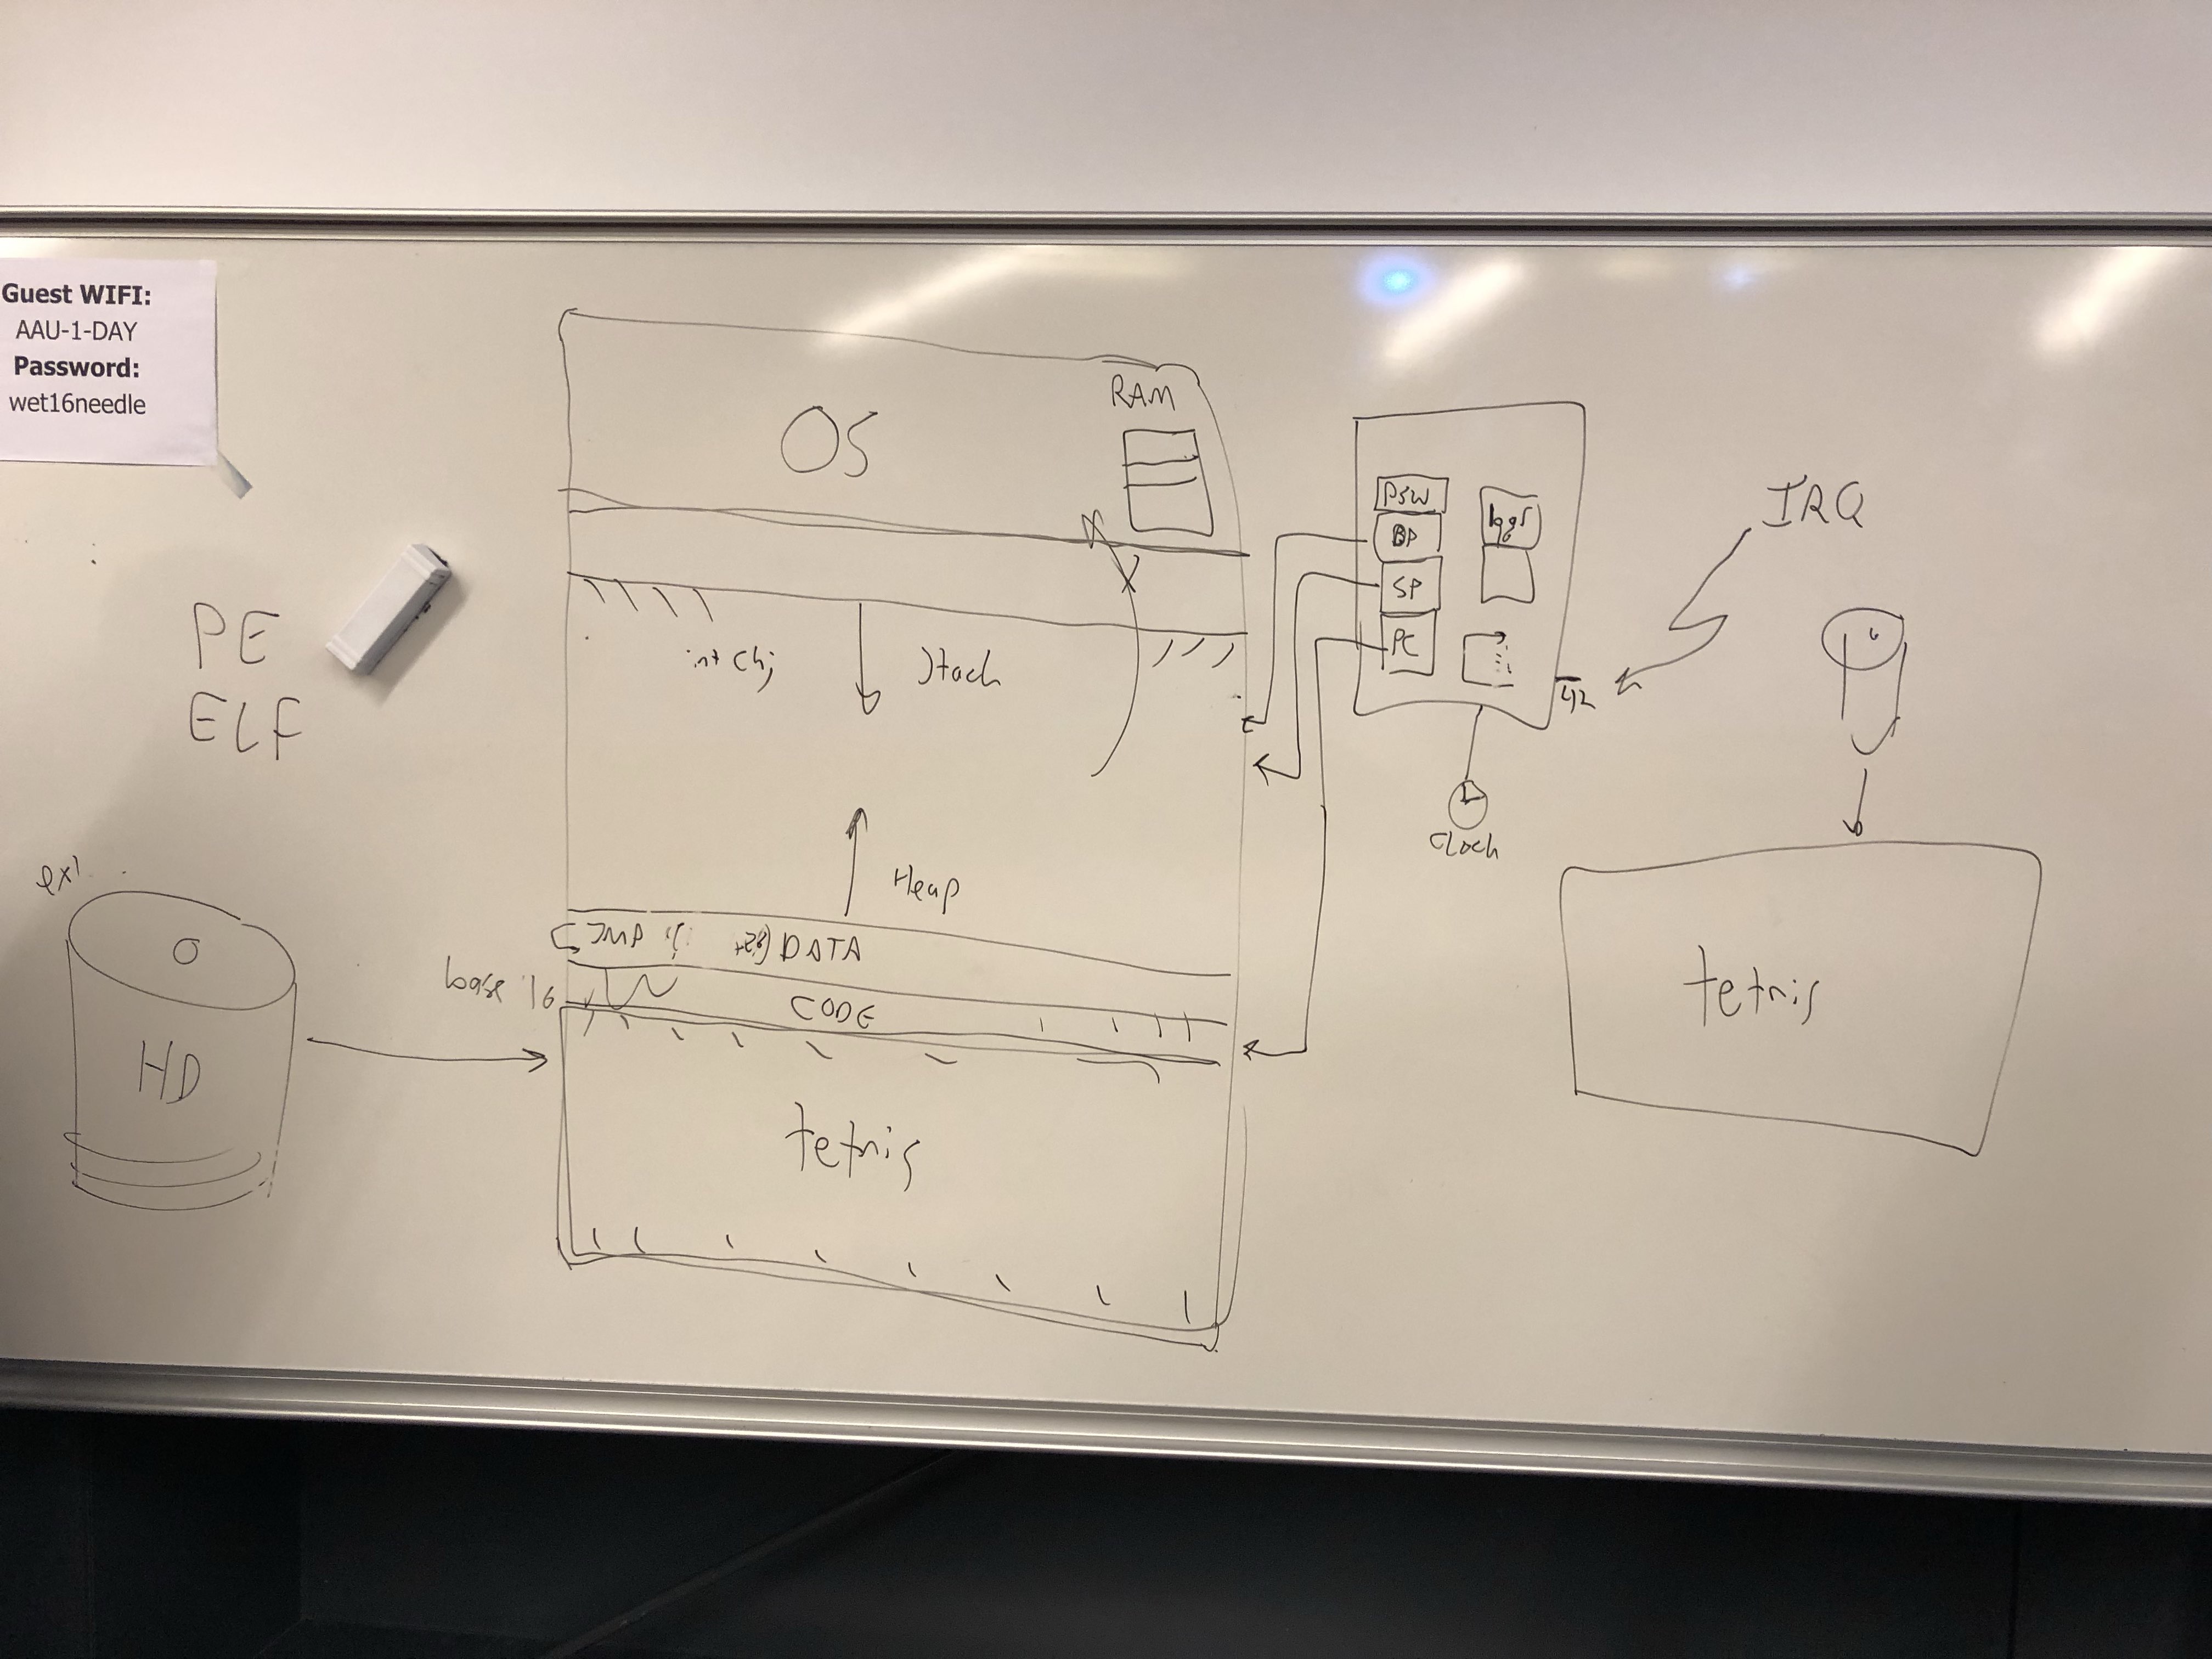 Guest WIFI:
AAU-1-DAY
Password:
wet16needle
PE
ELF
ext
HD
OS
RAM
int ch;
Stack
Heap
JMP
DATA
base 16
CODE
tetris
PSW
BP
SP
PC
regs
42
Clock
IRQ
tetris